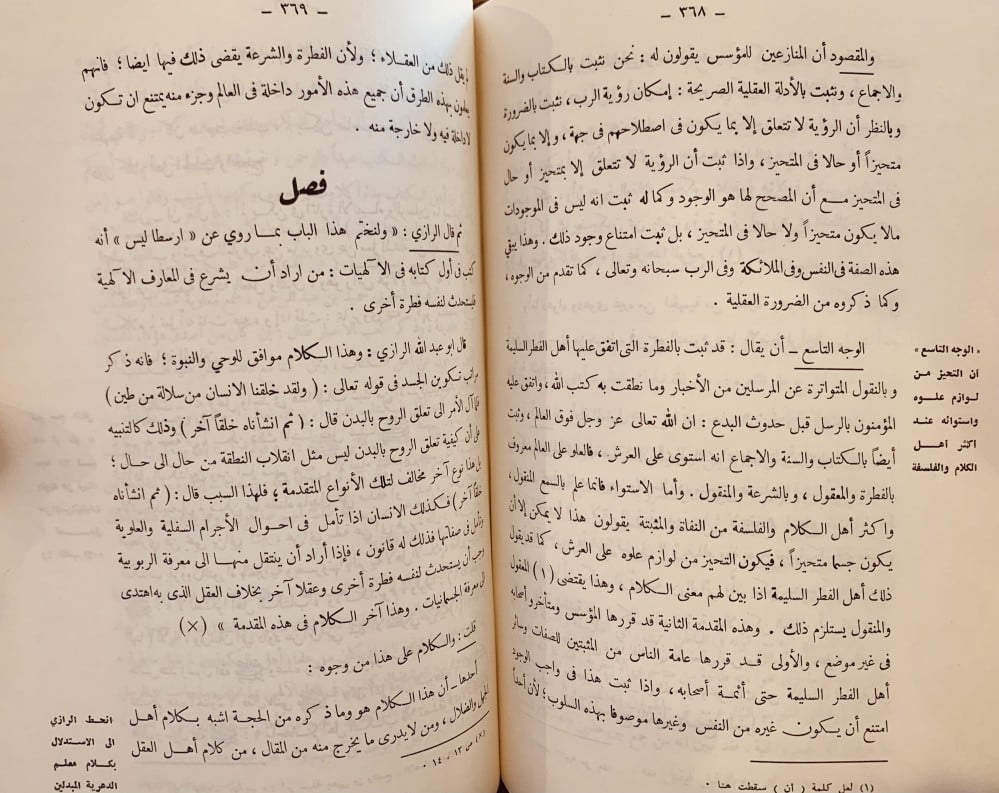 – ٣٦٨ –
والمقصود أن المنازعين للمؤسس يقولون له : نحن نثبت بالكتاب والسنة
والاجماع ، ونثبت بالأدلة العقلية الصريحة : إمكان رؤية الرب ، نثبت بالضرورة
وبالنظر أن الرؤية لا تتعلق إلا بما يكون فى اصطلاحهم فى جهة ، وإلا بما يكون
متحيزاً أو حالا فى المتحيز ، واذا ثبت أن الرؤية لا تتعلق إلا بمتحيز أو حال
فى المتحيز مع أن المصحح لها هو الوجود وكماله ثبت انه ليس فى الموجودات
مالا يكون متحيزاً ولا حالا فى المتحيز ، بل ثبت امتناع وجود ذلك . وهذا يبقي
هذه الصفة فى النفس وفى الملائكة وفى الرب سبحانه وتعالى ، كما تقدم من الوجوه ،
وكما ذكروه من الضرورة العقلية .
الوجه التاسع – أن يقال : قد ثبت بالفطرة التى اتفق عليها أهل الفطر السليمة
وبالنقول المتواترة عن المرسلين من الأخبار وما نطقت به كتب الله ، واتفق عليه
المؤمنون بالرسل قبل حدوث البدع : ان الله تعالى عز وجل فوق العالم ، وثبت
أيضاً بالكتاب والسنة والاجماع انه استوى على العرش ، فالعلو على العالم معروف
بالفطرة والمعقول ، وبالشرعة والمنقول . وأما الاستواء فانما علم بالسمع المنقول ،
واكثر أهل الكلام والفلسفة من النفاة والمثبتة يقولون هذا لا يمكن إلا أن
يكون جسما متحيزاً ، فيكون التحيز من لوازم علوه على العرش ، كما قد يقول
ذلك أهل الفطر السليمة اذا بين لهم معنى الكلام ، وهذا يقتضى (١) المعقول
والمنقول يستلزم ذلك . وهذه المقدمة الثانية قد قررها المؤسس ومتأخرو أصحابه
فى غير موضع ، والأولى قد قررها عامة الناس من المثبتين للصفات وسائر
أهل الفطر السليمة حتى أئمة أصحابه ، واذا ثبت هذا فى واجب الوجود
امتنع أن يكون غيره من النفس وغيرها موصوفا بهذه السلوب ؛ لأن أحداً
(١) لعل كلمة ( ان ) سقطت هنا .
« الوجه التاسع »
ان التحيز من
لوازم علوه
واستوائه عند
اكثر أهل
الكلام والفلسفة
– ٣٦٩ –
لم يقل ذلك من العقلاء ؛ ولأن الفطرة والشرعة يقضى ذلك فيها ايضا ؛ فانهم
يعلمون بهذه الطرق أن جميع هذه الأمور داخلة فى العالم وجزء منه يمتنع ان تكون
لا داخلة فيه ولا خارجة منه .
فصل
ثم قال الرازي : « ولنختم هذا الباب بما روي عن « ارسطا ليس » أنه
كتب فى أول كتابه فى الالهيات : من اراد أن يشرع فى المعارف الالهية
فليستحدث لنفسه فطرة أخرى .
قال ابو عبد الله الرازي : وهذا الكلام موافق للوحي والنبوة ؛ فانه ذكر
مراتب تكوين الجسد فى قوله تعالى : ( ولقد خلقنا الانسان من سلالة من طين )
فلما آل الأمر الى تعلق الروح بالبدن قال : ( ثم انشأناه خلقاً آخر ) وذلك كالتنبيه
على أن كيفية تعلق الروح بالبدن ليس مثل انقلاب النطفة من حال الى حال ؛
بل هذا نوع آخر مخالف لتلك الأنواع المتقدمة ؛ فلهذا السبب قال : ( ثم انشأناه
خلقاً آخر ) فكذلك الانسان اذا تأمل فى احوال الأجرام السفلية والعلوية
وتأمل فى صفاتها فذلك له قانون ، فإذا أراد أن ينتقل منها الى معرفة الربوبية
وجب أن يستحدث لنفسه فطرة أخرى وعقلا آخر بخلاف العقل الذى به اهتدى
الى معرفة الجسمانيات . وهذا آخر الكلام فى هذه المقدمة » (×)
قلت : والكلام على هذا من وجوه :
أحدها – أن هذا الكلام هو وما ذكره من الحجة اشبه بكلام أهل
الجهل والضلال ، ومن لا يدرى ما يخرج منه من المقال ، من كلام أهل العقل
(×) ص ١٣ ، ١٤ .
انحط الرازي
الى الاستدلال
بكلام معلم
الدهرية المبدلين